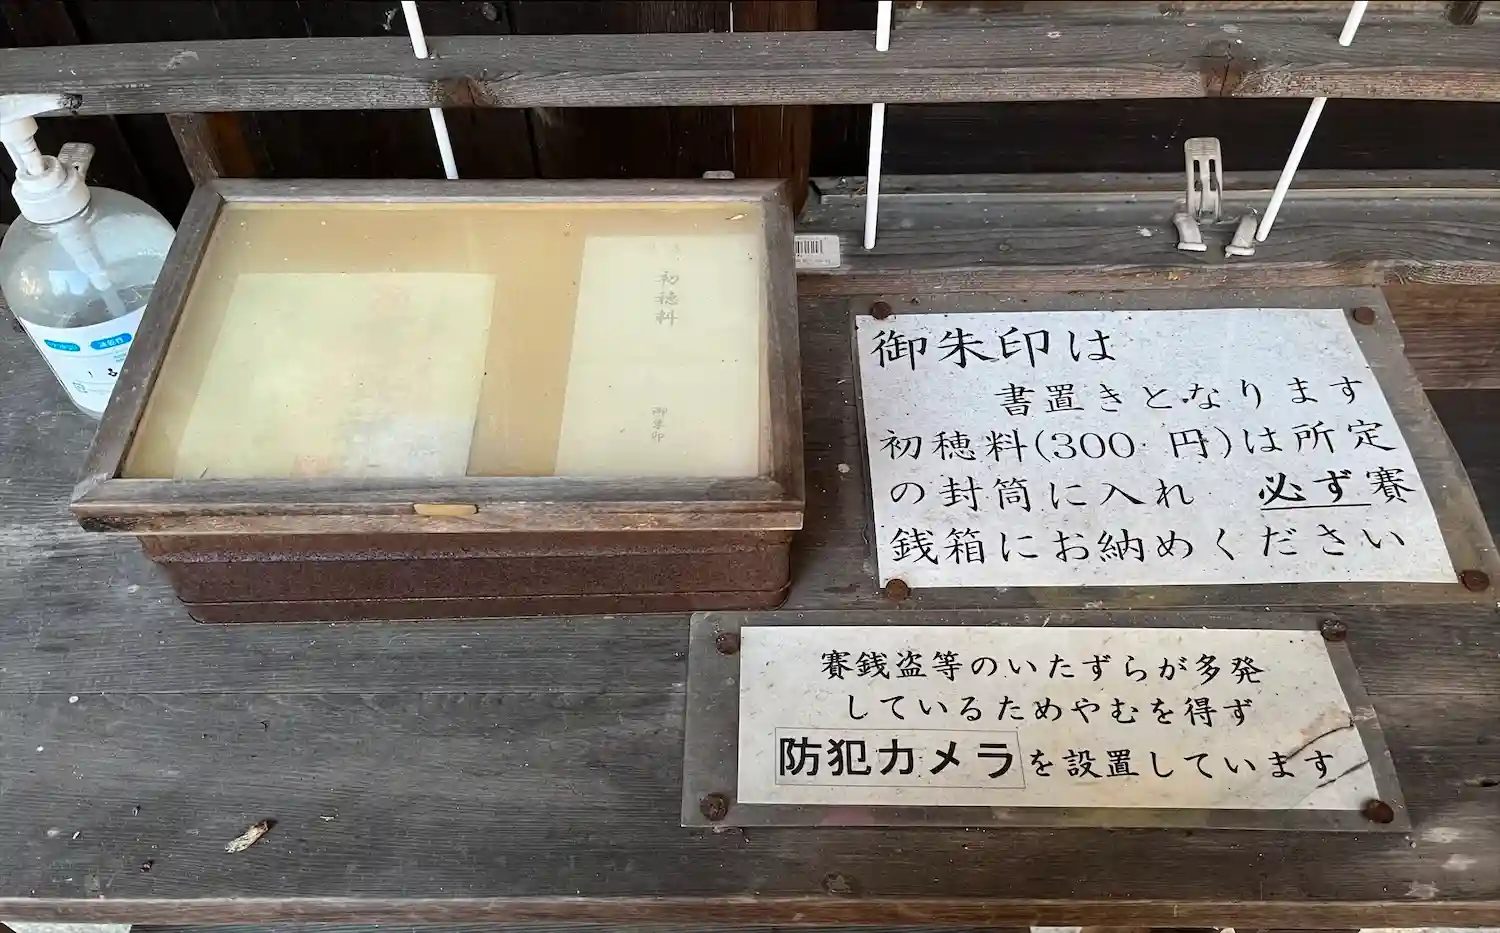 初穂料
御朱印
御朱印は
書置きとなります
初穂料(300 円)は所定
の封筒に入れ 必ず賽
銭箱にお納めください
賽銭盗等のいたずらが多発
しているためやむを得ず
防犯カメラを設置しています